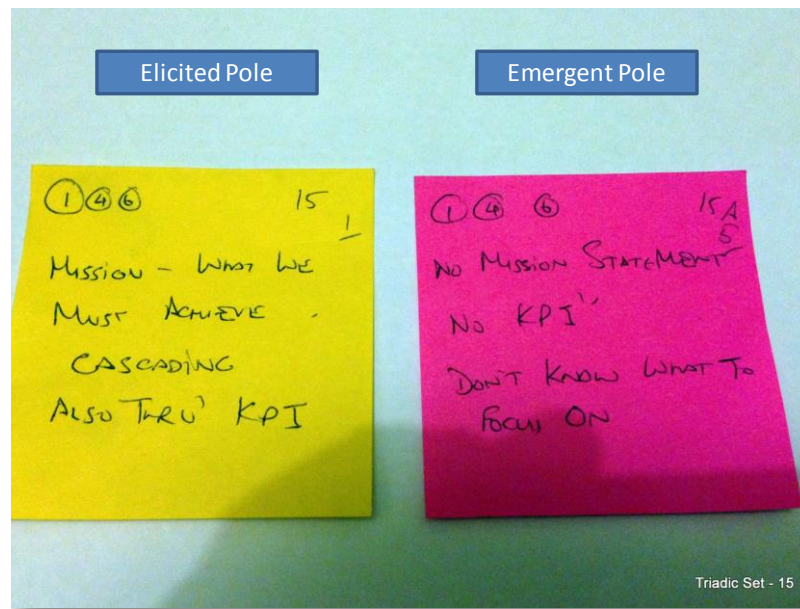 Elicited Pole
Emergent Pole
1 4 6 15
1
Mission - What We
Must Achieve .
CASCADING
ALSO THRU' KPI
1 4 6 15A
5
No Mission Statement
No KPI'
Don't Know What To
Focus On
Triadic Set - 15